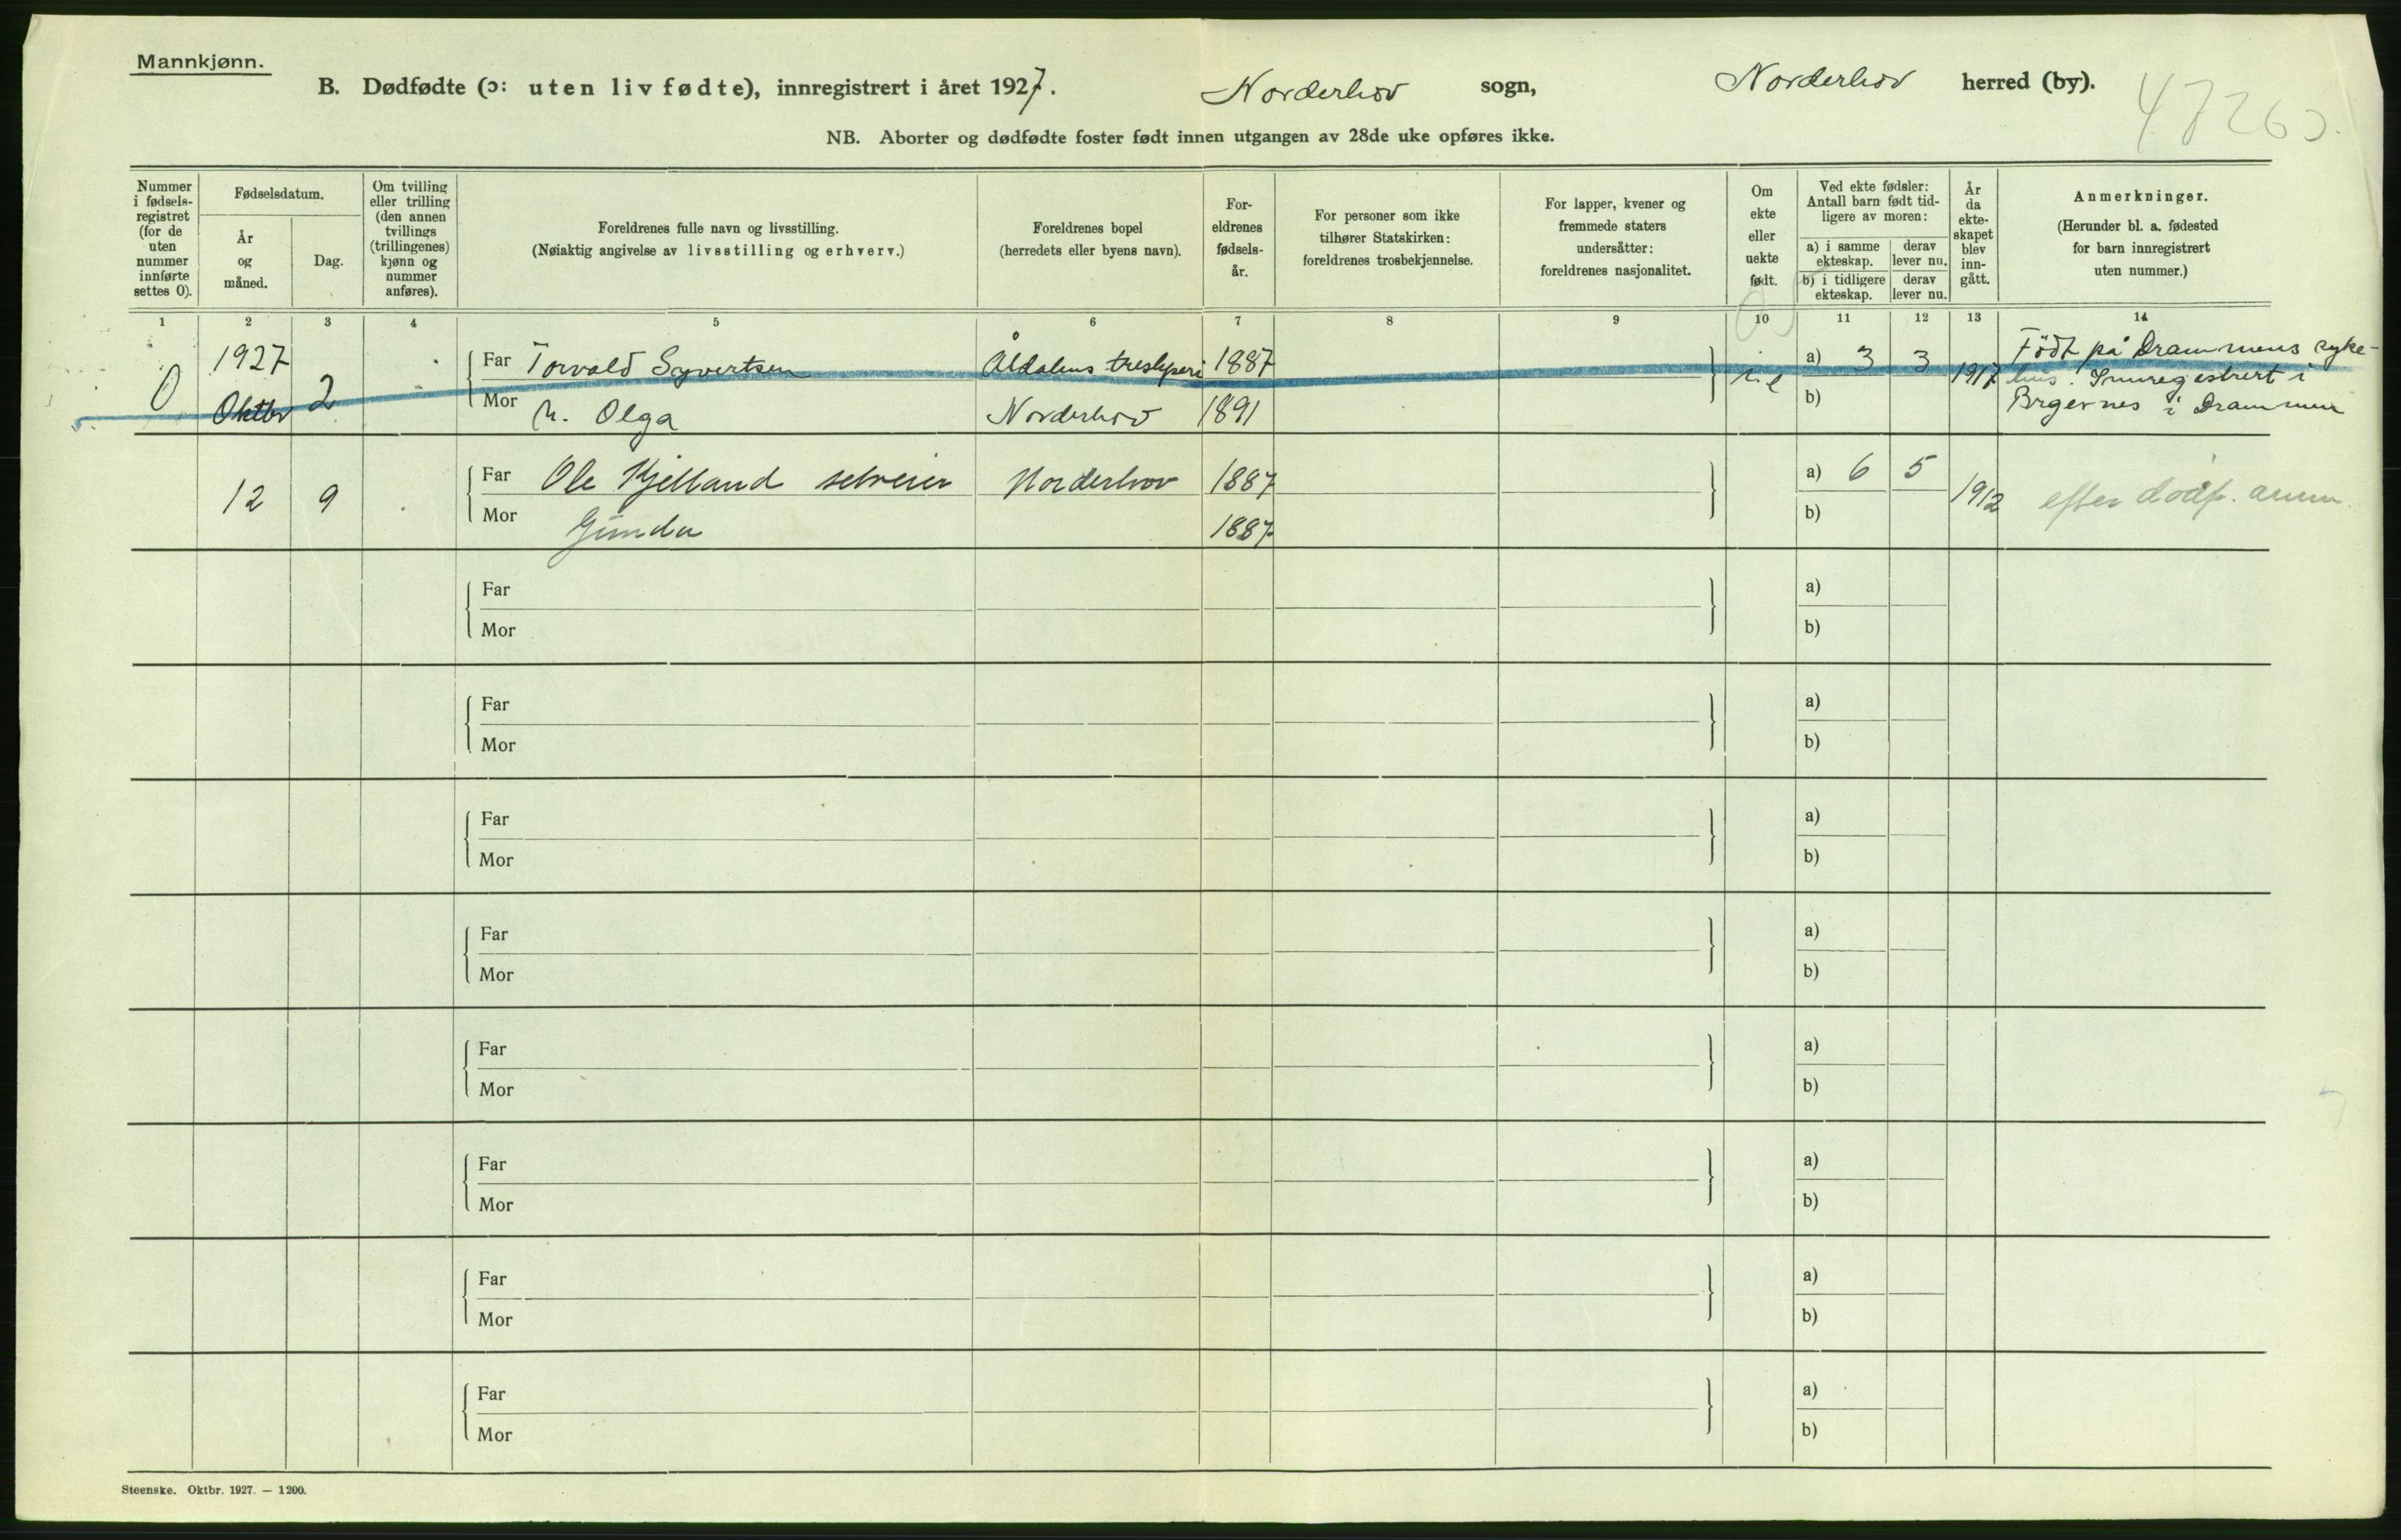 Mannkjønn.
B. Dødfødte (ɔ: uten liv fødte), innregistrert i året 1927. Norderhov sogn, Norderhov herred (by).
NB. Aborter og dødfødte foster født innen utgangen av 28de uke opføres ikke.
Nummer i fødsels-registret (for de uten nummer innførte settes 0).
Fødselsdatum.
År og måned.
Dag.
Om tvilling eller trilling (den annen tvillings (trillingenes) kjønn og nummer anføres).
Foreldrenes fulle navn og livsstilling.
(Nøiaktig angivelse av livsstilling og erhverv.)
Foreldrenes bopel
(herredets eller byens navn).
For-eldrenes fødsels-år.
For personer som ikke tilhører Statskirken: foreldrenes trosbekjennelse.
For lapper, kvener og fremmede staters undersåtter: foreldrenes nasjonalitet.
Om ekte eller uekte født.
Ved ekte fødsler: Antall barn født tid-ligere av moren:
a) i samme ekteskap.
derav lever nu.
b) i tidligere ekteskap.
derav lever nu.
År da ekte-skapet blev inn-gått.
Anmerkninger.
(Herunder bl. a. fødested for barn innregistrert uten nummer.)
1 2 3 4 5 6 7 8 9 10 11 12 13 14
0 1927 Oktbr 2
Far Torvald Syvertsen Ådalens tresliperi 1887
Mor h. Olga Norderhov 1891
i.e a) 3 3 1917
b)
Född på Drammens syke-
hus. Innregestrert i
Bragernes i Drammen
12 9
Far Ole Kjelland selveier Norderhov 1887
Mor Gunda 1887
a) 6 5 1912
b)
efter dødf. anm.
Far a)
Mor b)
Far a)
Mor b)
Far a)
Mor b)
Far a)
Mor b)
Far a)
Mor b)
Far a)
Mor b)
Far a)
Mor b)
Far a)
Mor b)
Steenske. Oktbr. 1927. — 1200.